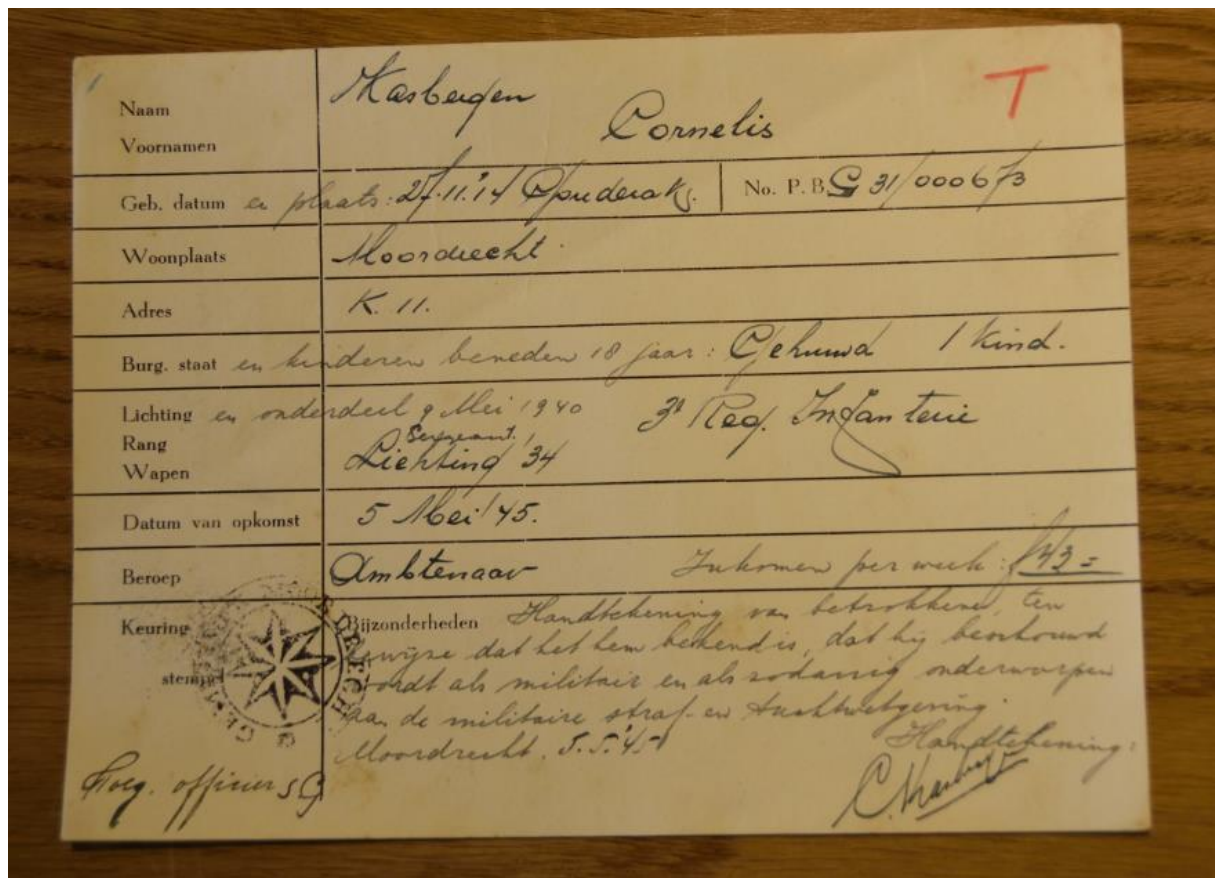 1
T
Naam Kasbergen
Voornamen Cornelis
Geb. datum en plaats: 27.11.'14 Gouderak. No. P.B. G 31/000673
Woonplaats Moordrecht.
Adres K. 11.
Burg. staat en kinderen beneden 18 jaar: Gehuwd 1 Kind.
Lichting en onderdeel 9 Mei 1940 3e Reg. Infanterie
Rang Sergeant.
Wapen Lichting '34
Datum van opkomst 5 Mei '45.
Beroep Ambtenaar Inkomen per week: f 43=
Keuring Bijzonderheden Handtekening van betrokkene, ten
bewijze dat het hem bekend is, dat hij beschouwd
stempel wordt als militair en als zodanig onderworpen
aan de militaire straf- en tuchtwetgeving.
Moordrecht. 5.5.'45 Handtekening:
officier SG